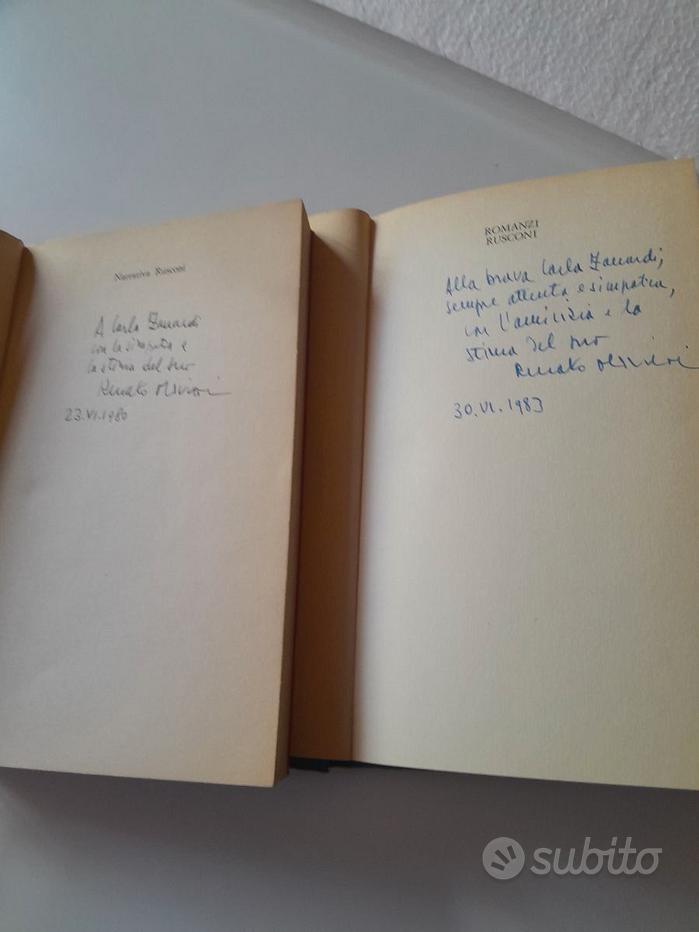 Narrativa Rusconi
A Carla Zanardi
con la simpatia e
la stima del suo
Renato Olivieri
23.VI.1980
ROMANZI
RUSCONI
Alla brava Carla Zanardi,
sempre attenta e simpatica,
con l'amicizia e la
stima del suo
Renato Olivieri
30.VI.1983
subito